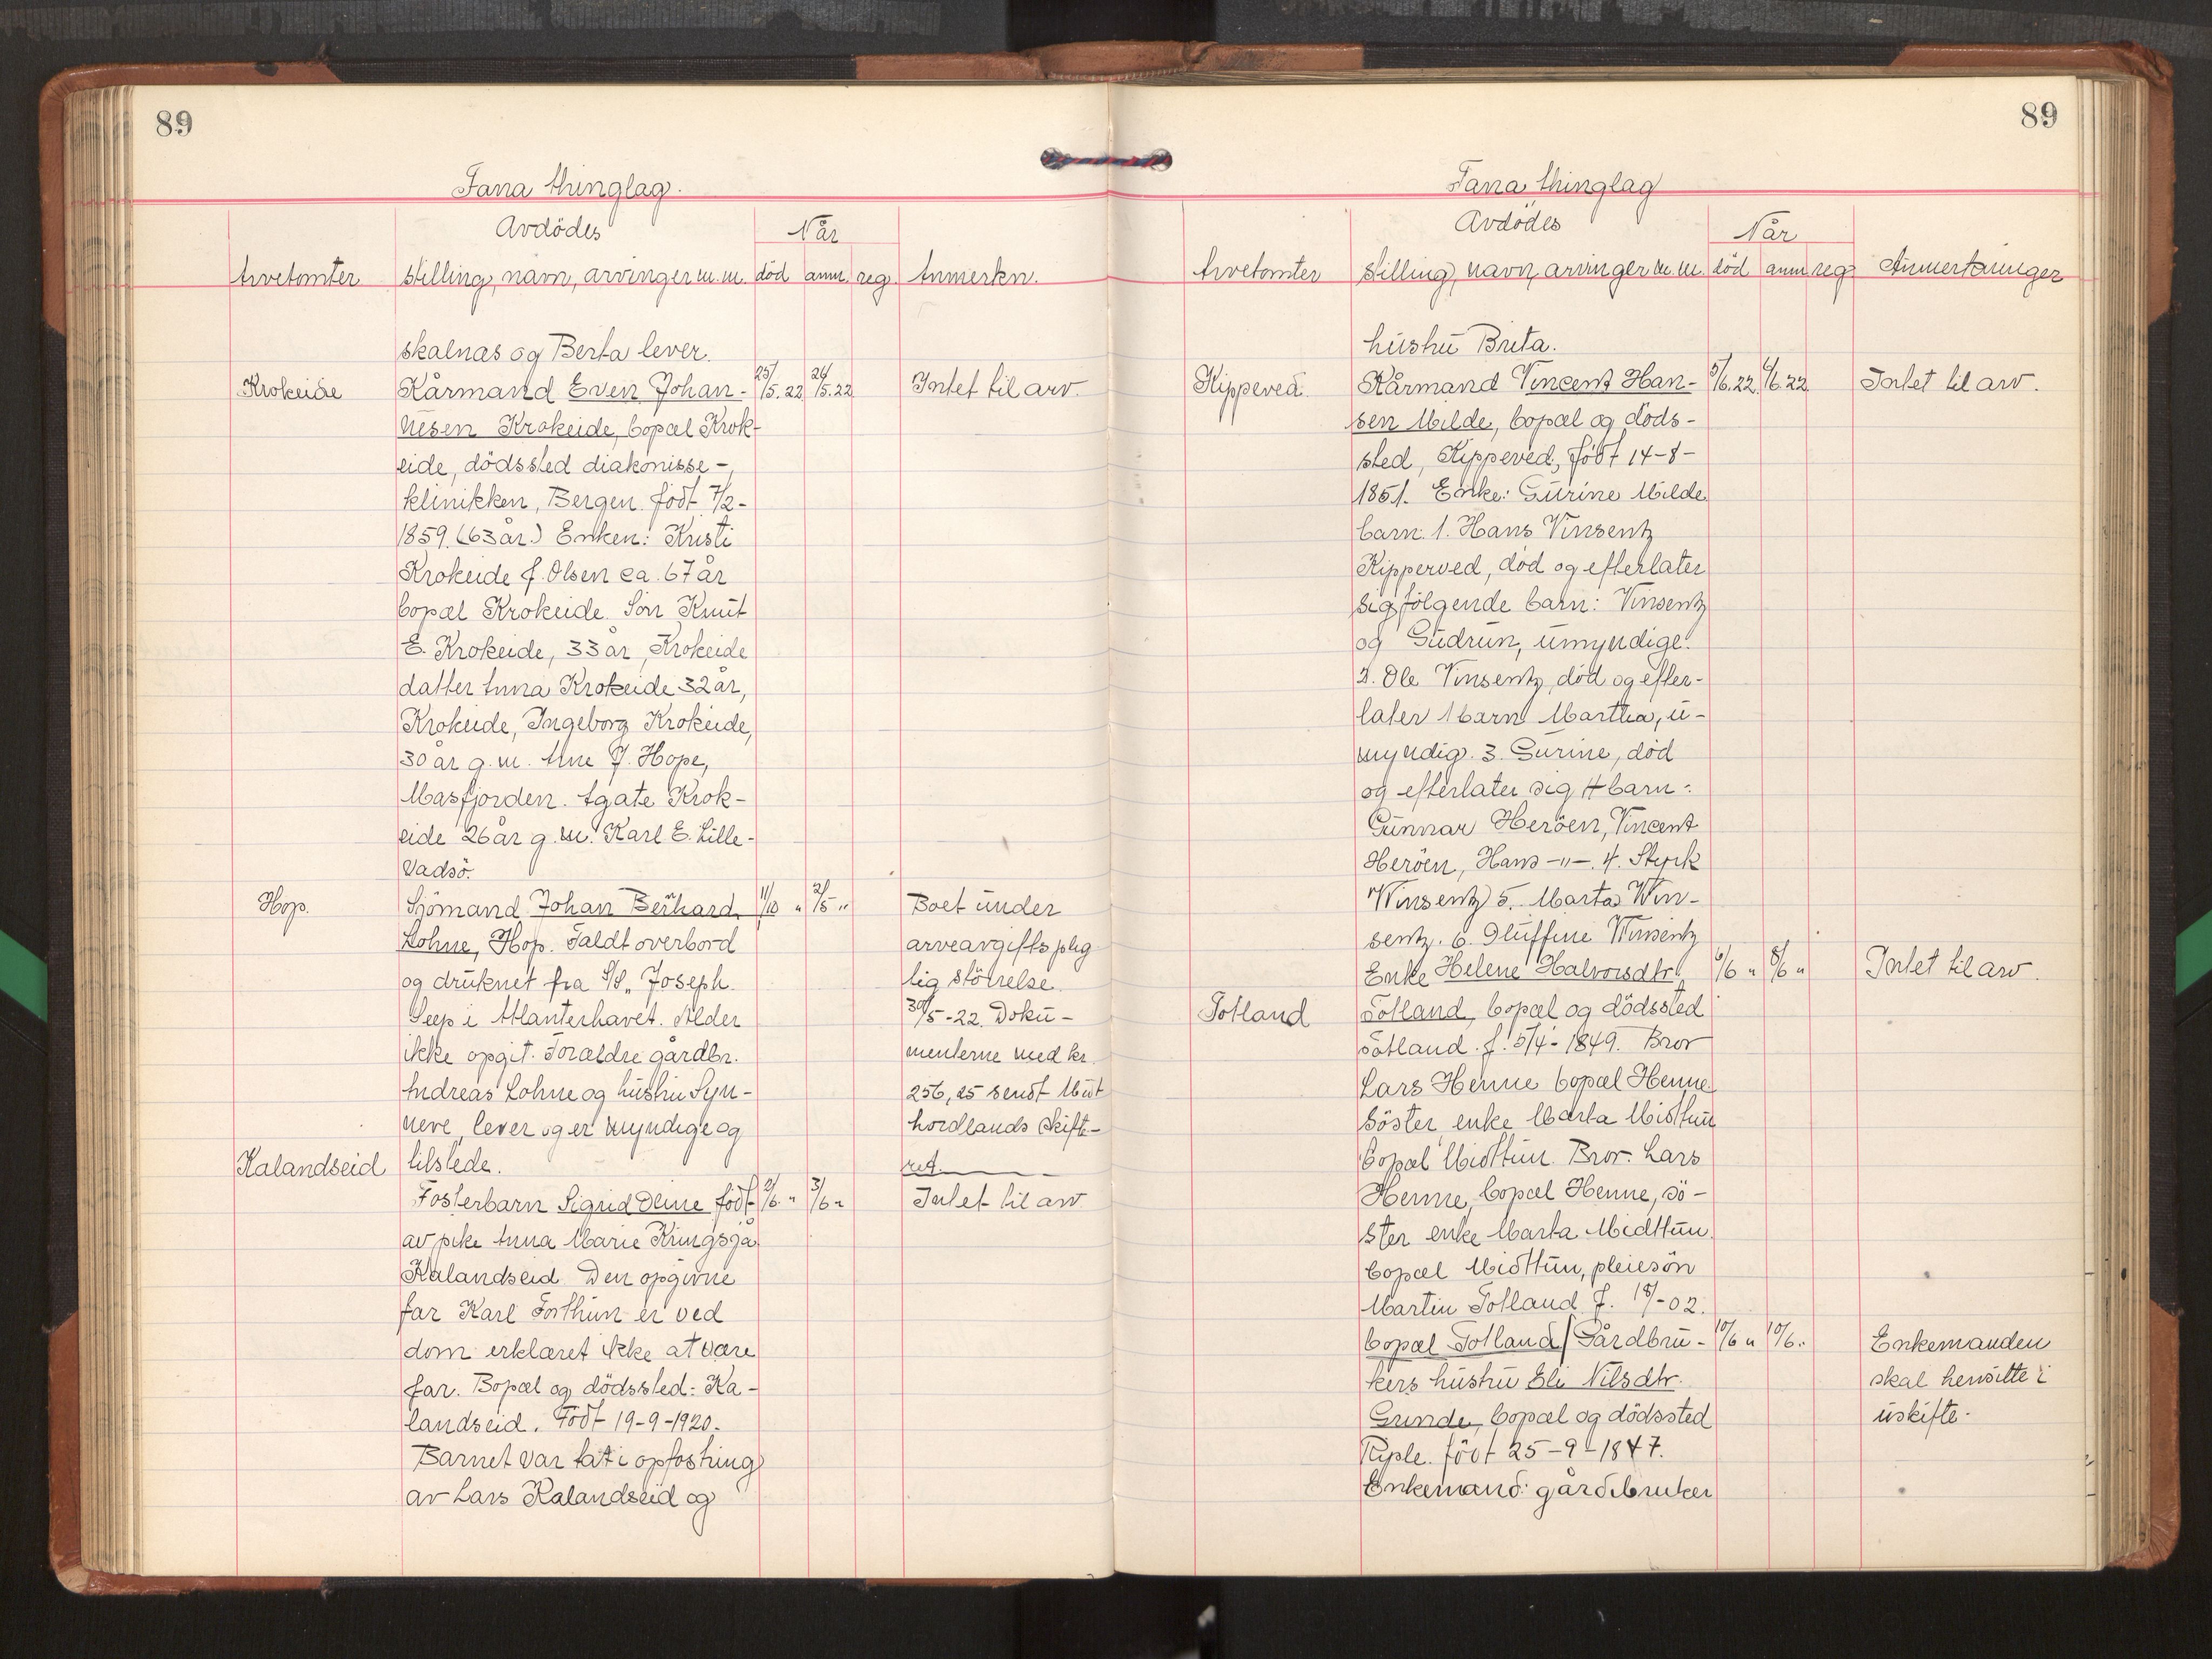 89
Fana thinglag.
Avdödes
Når
Arvetomter stilling, navn, arvinger m.m. död anm. reg. Anmerkn.
skalnas og Berta lever.
Krokeide Kårmand Even Johan- 25/5.22 26/5.22 Intet til arv.
nesen Krokeide, bopæl Krok-
eide, dödssted diakonisse-
klinikken, Bergen. födt 7/2-
1859. (63 år.) Enken: Kristi
Krokeide f. Olsen ca. 67 år
bopæl Krokeide. Sön Knut
E. Krokeide, 33 år, Krokeide
datter Anna Krokeide 32 år,
Krokeide, Ingeborg Krokeide,
30 år g.m. Arne J. Hope,
Masfjorden. Agate Krok-
eide 26 år g.m. Karl E. Lille-
Vadsö.
Hop. Sjömand Johan Berhard 11/10 " 2/5 " Boet under
Lohne, Hop. Faldt overbord arveavgiftsplig
og druknet fra S/S. Joseph lig störrelse.
Seep i Atlanterhavet. Alder 30/5-22. Doku-
ikke opgit. Forældre gårdbr. menterne med kr.
Andreas Lohne og hustru Syn- 256,25 sendt Midt
neve, lever og er myndige og hordlands skifte-
Kalandseid tilstede. ret.
Fosterbarn Sigrid Deine födt 2/6 " 3/6 " Intet til arv
av pike Anna Marie Kringsjå
Kalandseid. Den opgivne
far Karl Forthun er ved
dom erklæret ikke at være
far. Bopæl og dödssted: Ka-
landseid. Födt 19-9-1920.
Barnet var tat i opfostring
av Lars Kalandseid og
89
Fana thinglag
Avdödes
Når
Arvetomter stilling, navn, arvinger m.m. död anm reg Anmerkninger
hustru Brita.
Kippeved. Kårmand Vincent Han- 5/6.22. 6/6.22 Intet til arv.
sen Milde, bopæl og döds-
sted, Kippeved, födt 14-8-
1851. Enke: Gurine Milde
barn: 1. Hans Vinsentz
Kipperved, död og efterlater
sig fölgende barn: Vinsentz
og Gudrun, umyndige.
2. Ole Vinsentz, död og efter-
later 1 barn Martha, u-
myndig. 3. Gurine, död
og efterlater sig 4 barn:
Gunnar Heröen, Vincent
Heröen, Hans -"-. 4. Styrk
Winsentz 5. Marta Win-
sentz. 6. Gluffine Winsentz
Enke Helene Halvorsdtr. 6/6 " 8/6 " Intet til arv.
Totland Totland, bopæl og dödssted
Totland. f. 5/4-1849. Bror
Lars Henne bopæl Henne.
söster enke Marta Midttun
bopæl Midttun. Bror: Lars
Henne, bopæl Henne, sö-
ster enke Marta Midttun.
bopæl Midttun, pleiesön
Martin Totland f. 18/-02.
bopæl Totland/Gårdbru- 10/6 " 10/6. Enkemanden
kers hustru Eli Nilsdtr. skal hensitte i
Grinde, bopæl og dödssted uskifte.
Ryple. födt 25-9-1847.
Enkemand: gårdbruker